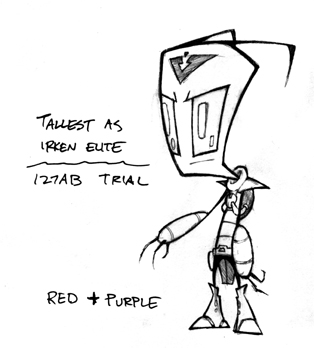 TALLEST AS
IRKEN ELITE
127AB TRIAL
RED + PURPLE